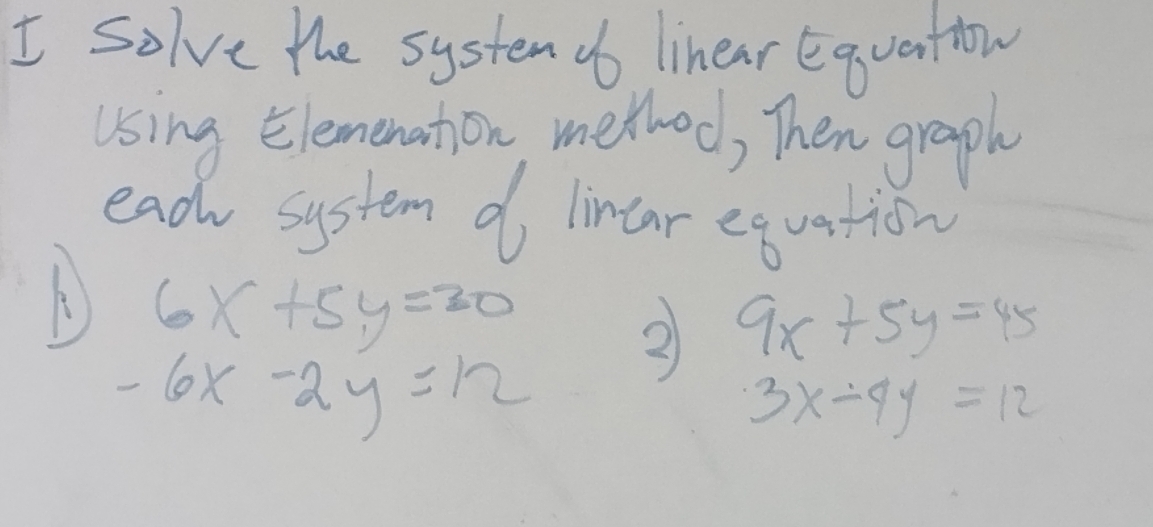 I Solve the system of linear Equation
Using Elemenation method, Then graph
each system of linear equation
1) 6x +5y=30
-6x -2y =12
2) 9x +5y =45
3x-4y =12